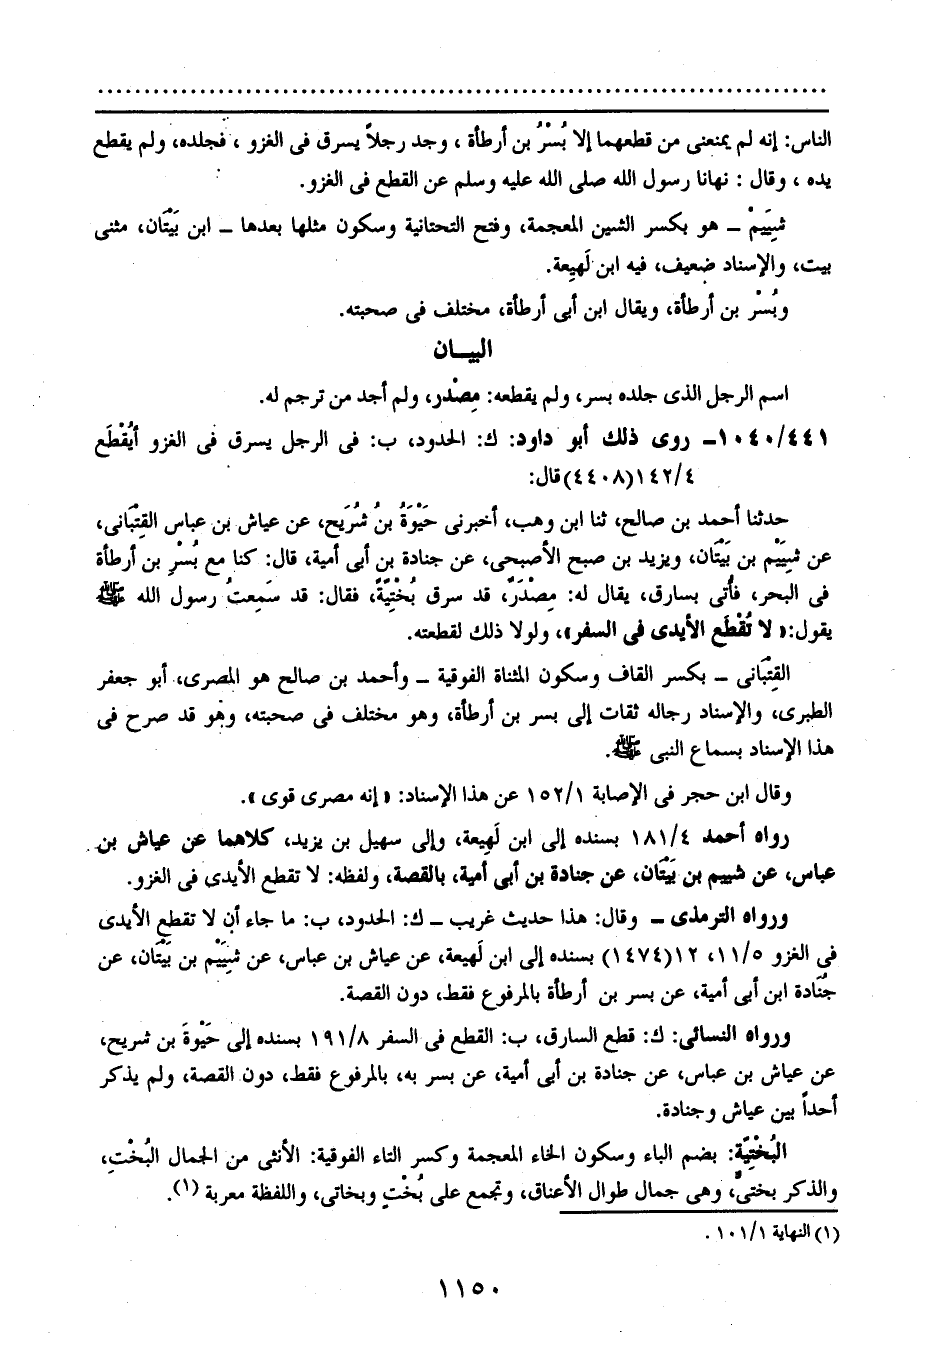 الناس: إنه لم يمنعنى من قطعهما إلا بُسْرُ بن أرطأة ، وجد رجلاً يسرق فى الغزو ، فجلده، ولم يقطع
يده ، وقال : نهانا رسول الله صلى الله عليه وسلم عن القطع فى الغزو.
شِيَيَمْ – هو بكسر الشين المعجمة، وفتح التحتانية وسكون مثلها بعدها – ابن بَيْتَان، مثنى
بيت، والإسناد ضعيف، فيه ابن لَهِيعة.
وبُسْر بن أرطأة، ويقال ابن أبى أرطأة، مختلف فى صحبته.
البيـــان
اسم الرجل الذى جلده بسر، ولم يقطعه: مِصْدر، ولم أجد من ترجم له.
١٠٤٠/٤٤١– روى ذلك أبو داود: ك: الحدود، ب: فى الرجل يسرق فى الغزو أيُقْطَع
١٤٢/٤(٤٤٠٨) قال:
حدثنا أحمد بن صالح، ثنا ابن وهب، أخبرنى حَيْوَةُ بنُ شُرَيح، عن عياش بن عباس القِتْبَانى،
عن شِيَيْم بن بَيْتَان، ويزيد بن صبح الأصبحى، عن جنادة بن أبى أمية، قال: كنا مع بُسْرِ بن أرطأة
فى البحر، فأُتى بسارق، يقال له: مِصْدَرٌ، قد سرق بُخْتِيَّةً، فقال: قد سَمِعتُ رسول الله ﷺ
يقول:« لا تُقْطَع الأيدى فى السفر»، ولولا ذلك لقطعته.
القِتْبَانى – بكسر القاف وسكون المثناة الفوقية – وأحمد بن صالح هو المصرى، أبو جعفر
الطبرى، والإسناد رجاله ثقات إلى بسر بن أرطأة، وهو مختلف فى صحبته، وهو قد صرح فى
هذا الإسناد بسماع النبى ﷺ.
وقال ابن حجر فى الإصابة ١٥٢/١ عن هذا الإسناد: « إنه مصرى قوى ».
رواه أحمد ١٨١/٤ بسنده إلى ابن لَهِيعة، وإلى سهيل بن يزيد، كلاهما عن عياش بن
عباس، عن شييم بن بَيْتَان، عن جنادة بن أبى أمية، بالقصة، ولفظه: لا تقطع الأيدى فى الغزو.
ورواه الترمذى – وقال: هذا حديث غريب – ك: الحدود، ب: ما جاء أن لا تقطع الأيدى
فى الغزو ١١/٥، ١٢(١٤٧٤) بسنده إلى ابن لَهِيعة، عن عياش بن عباس، عن شِيَيْم بن بَيْتَان، عن
جُنَادة ابن أبى أمية، عن بسر بن أرطأة بالمرفوع فقط، دون القصة.
ورواه النسائى: ك: قطع السارق، ب: القطع فى السفر ١٩١/٨ بسنده إلى حَيْوةَ بن شريح،
عن عياش بن عباس، عن جنادة بن أبى أمية، عن بسر به، بالمرفوع فقط، دون القصة، ولم يذكر
أحداً بين عياش وجنادة.
البُخْتِيَّة: بضم الباء وسكون الخاء المعجمة وكسر التاء الفوقية: الأنثى من الجمال البُخْتِ،
والذكر بختىٌّ، وهى جمال طوال الأعناق، وتجمع على بُخْتٍ وبخاتى، واللفظة معربة (١).
(١) النهاية ١٠١/١ .
١١٥٠